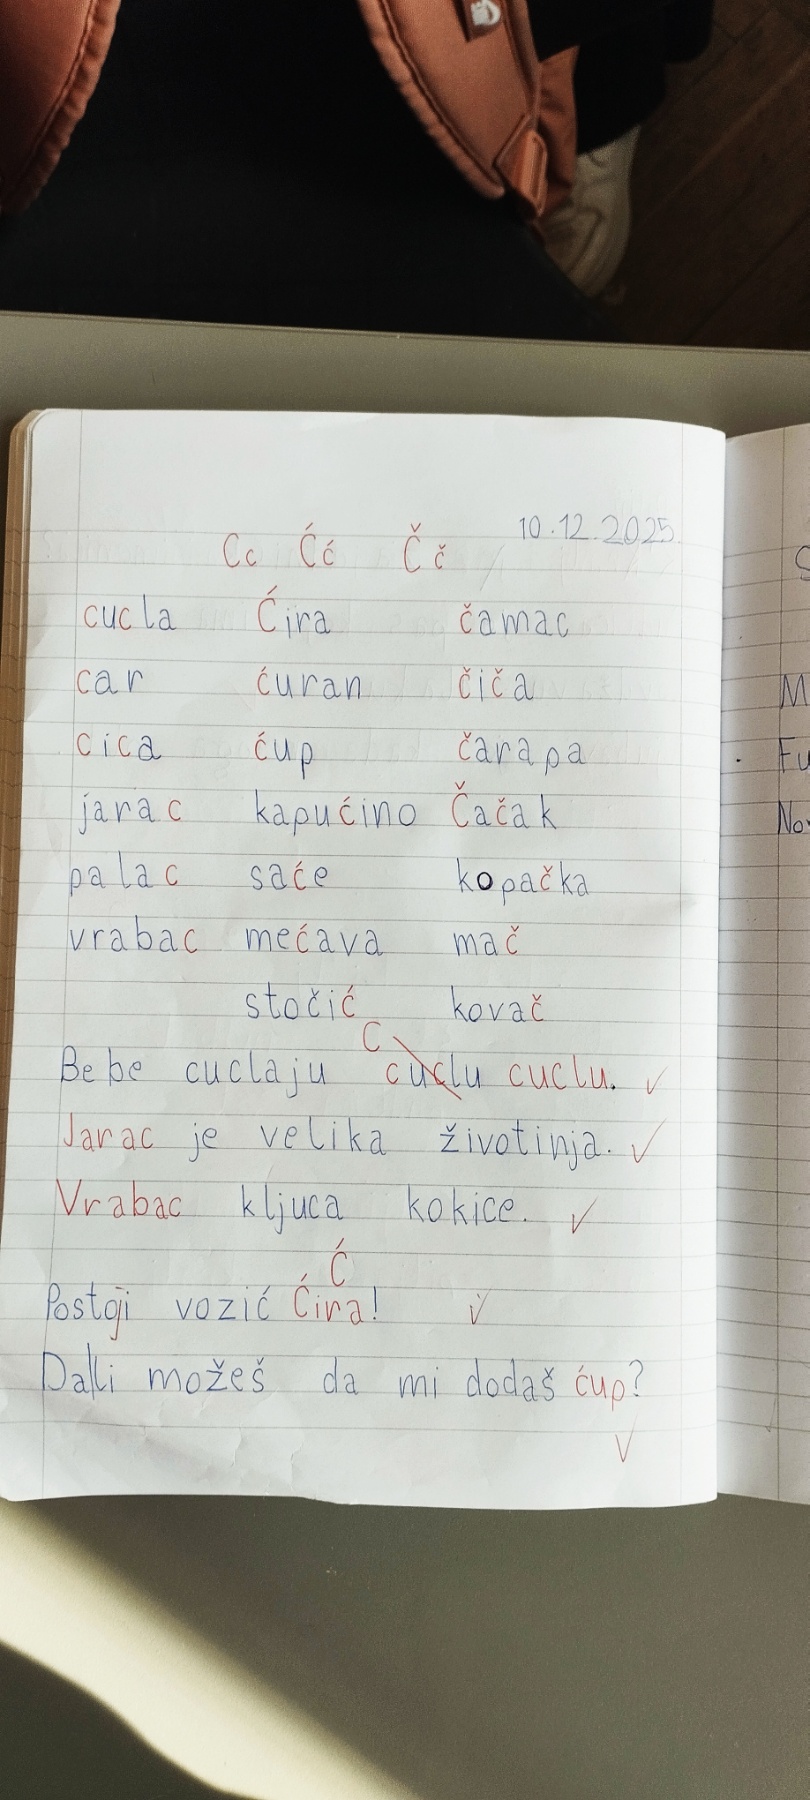 10.12.2025.
Cc Ćć Čč
cucla Ćira čamac
car ćuran čiča
cica ćup čarapa
jarac kapućino Čačak
palac saće kopačka
vrabac mećava mač
stočić kovač
C
Bebe cuclaju cuclu cuclu.
Jarac je velika životinja.
Vrabac kljuca kokice.
Ć
Postoji vozić Ćira!
Da|li možeš da mi dodaš ćup?
M
Fu
No